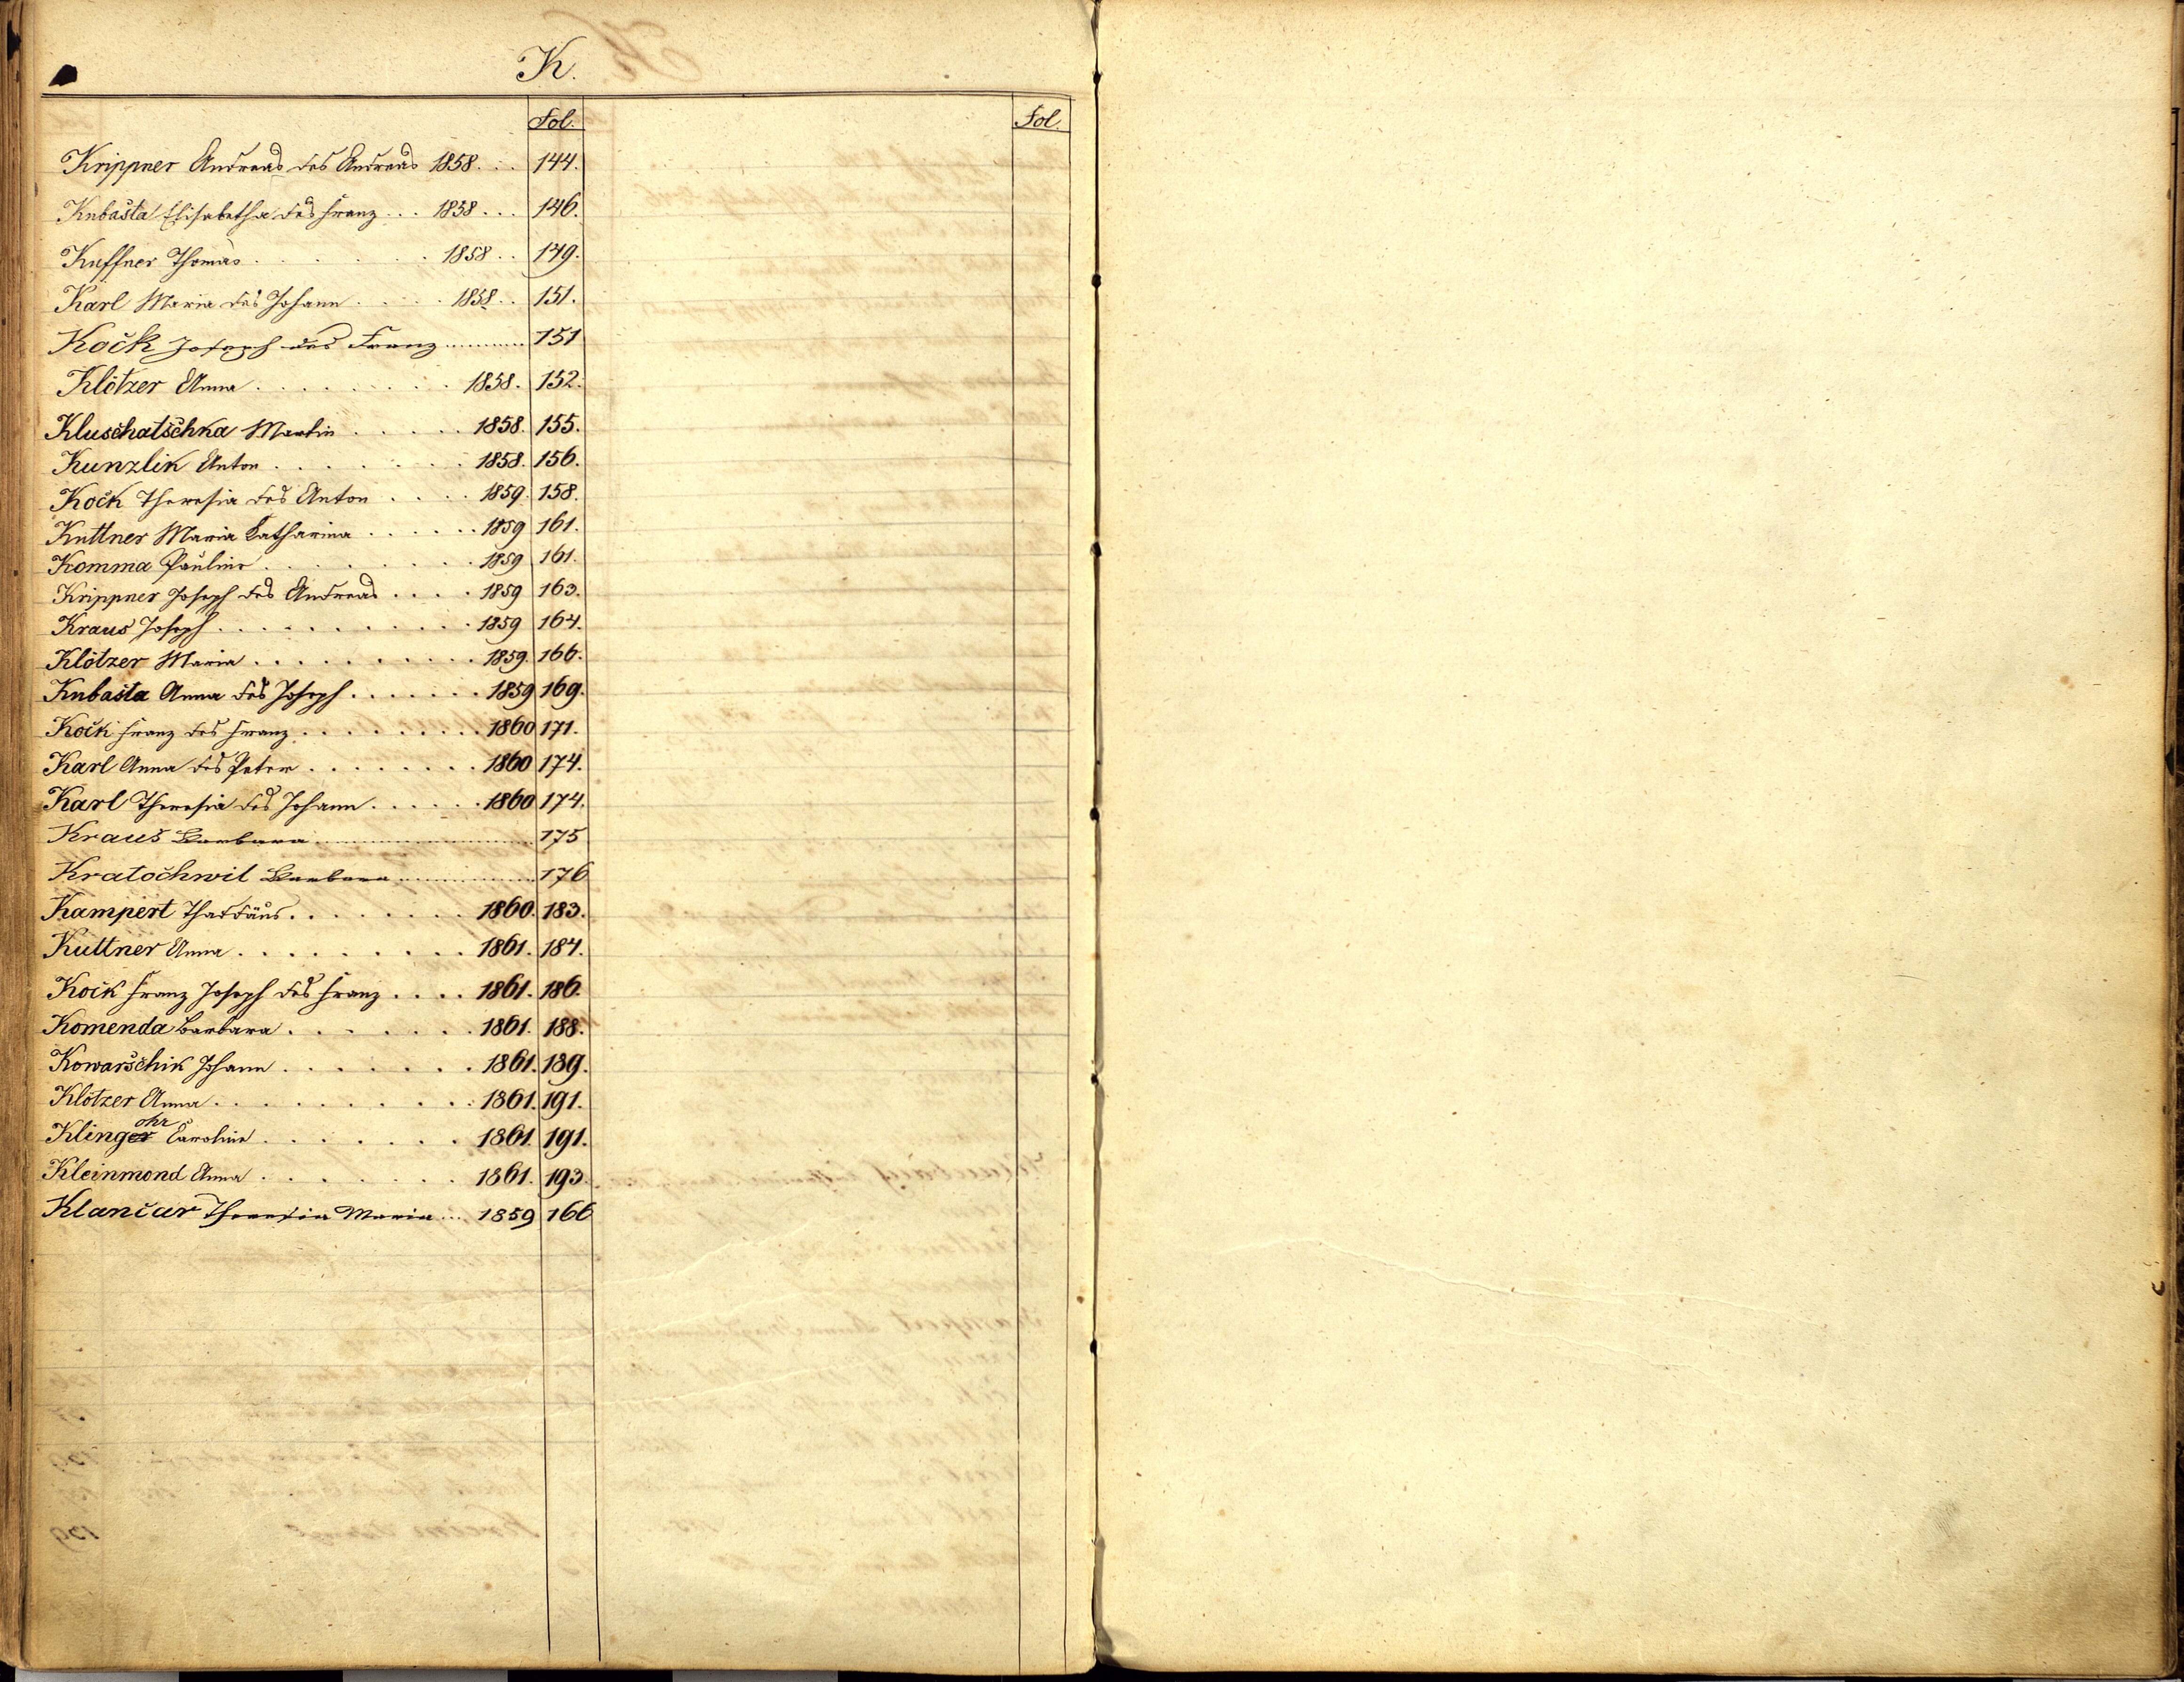 K.
Fol. Fol.
Krippner Andreas des Andreas 1858. . . 144.
Kubašta Elisabetha des Franz . . . 1858 . . . 146.
Kuffner Thomas . . . . . . . 1858 . . 149.
Karl Maria des Johann . . . . 1858 . . 151.
Kočk Joseph des Franz ........... 151
Klötzer Anna . . . . . . . . 1858. 152.
Kluschatschka Martin . . . . . 1858. 155.
Kunzlik Anton . . . . . . . 1858. 156.
Kočk Theresia des Anton . . . . 1859. 158.
Kuttner Maria Katharina . . . . . . 1859 161.
Komma Pauline . . . . . . . . . 1859 161.
Krippner Joseph des Andreas . . . . 1859 163.
Kraus Joseph . . . . . . . . . . 1859 164.
Klötzer Maria . . . . . . . . . . 1859. 166.
Kubašta Anna des Joseph . . . . . . 1859 169.
Kočk Franz des Franz . . . . . . . . . 1860 171.
Karl Anna des Peter . . . . . . . . 1860 174.
Karl Theresia des Johann . . . . . . 1860 174.
Kraus Barbara .................. 175
Kratochwil Barbara ............ 176
Kampert Thaddäus . . . . . . . 1860. 183.
Kuttner Anna . . . . . . . . . 1861. 184.
Kočk Franz Joseph des Franz . . . . 1861. 186.
Komenda Barbara . . . . . . . 1861. 188.
Kowarschik Johann . . . . . . . 1861. 189.
Klötzer Anna . . . . . . . . . . 1861. 191.
Klingerohr Caroline . . . . . . . 1861. 191.
Kleinmond Anna . . . . . . . . 1861. 193.
Klančar Theresia Maria .... 1859 166